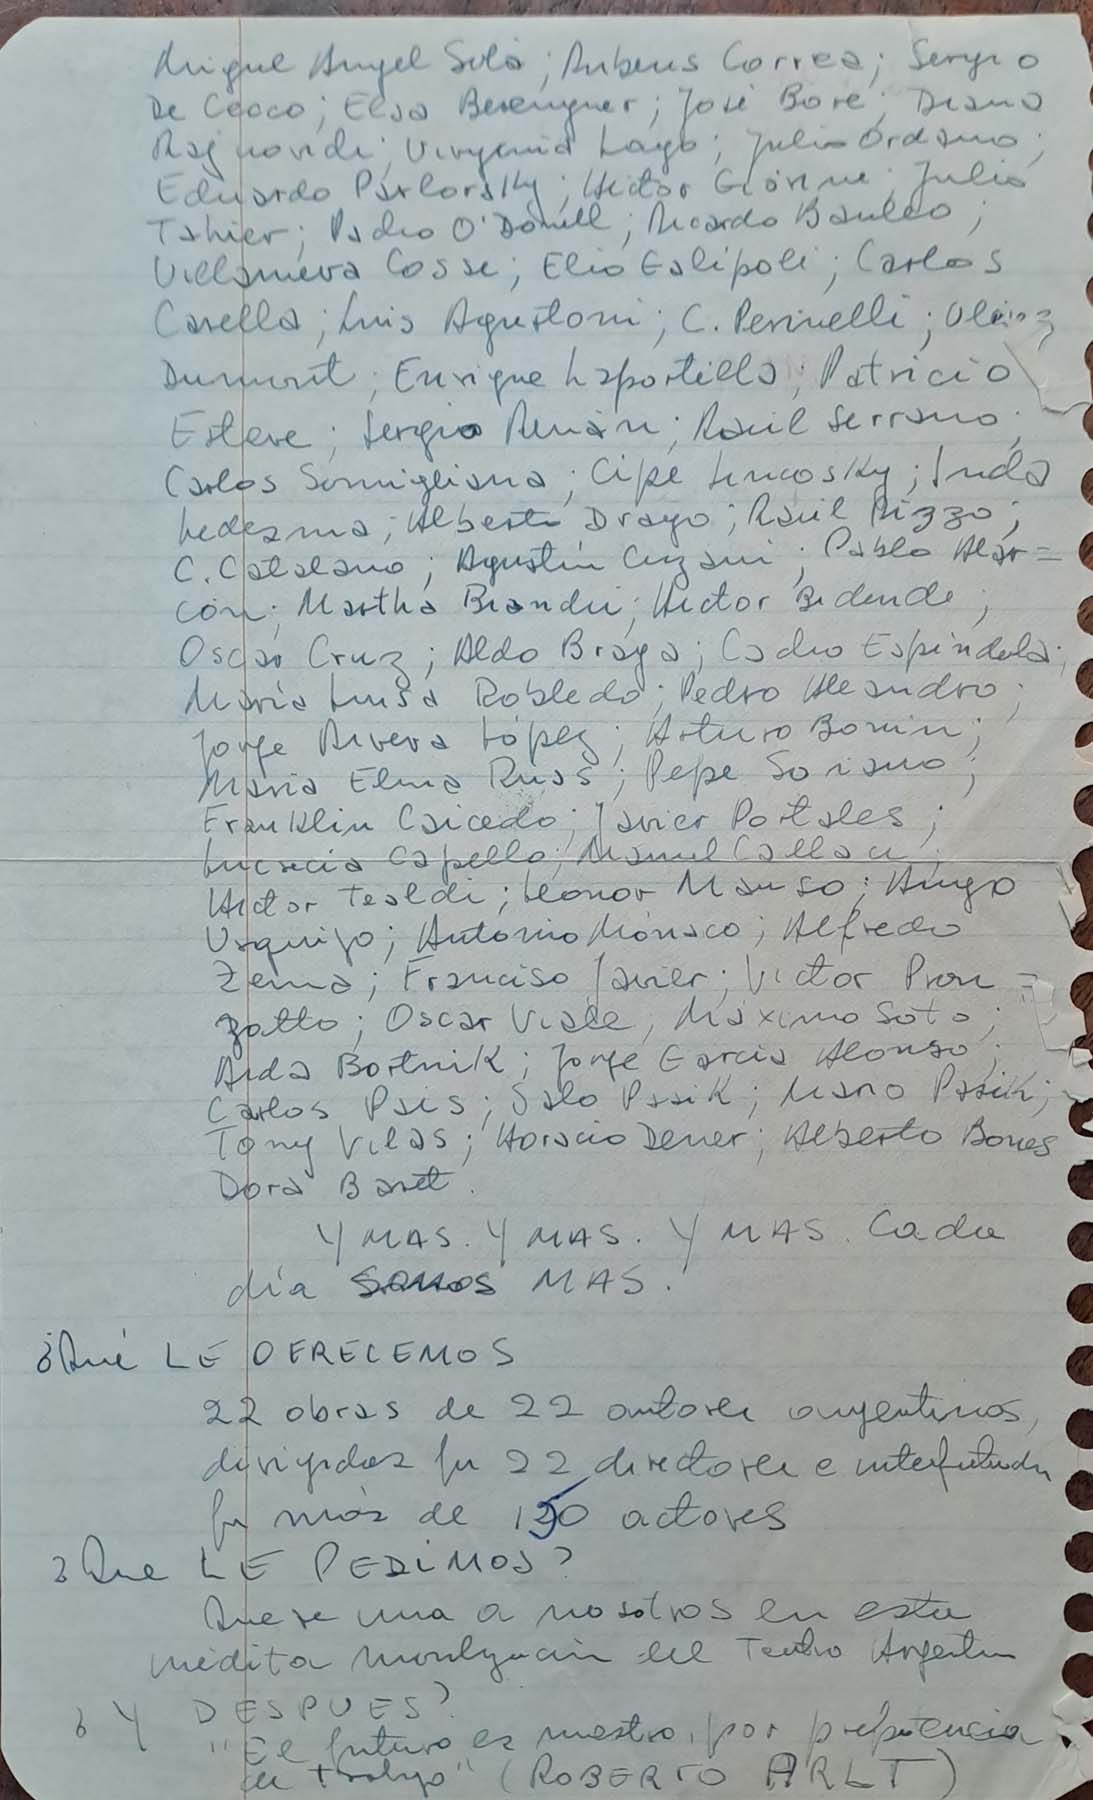 Miguel Angel Solá; Rubens Correa; Sergio
De Cecco; Elsa Berenguer; José Bove; Diana
Raznovich; Virginia Lago; Julio Ordano;
Eduardo Pavlovsky; Hector Giovine; Julio
Tahier; Pacho O'Donell; Ricardo Bauleo;
Villanueva Cosse; Elio Galipoli; Carlos
Carella; Luis Agustoni; C. Perinelli; Ulises
Dumont; Enrique Laportilla; Patricio
Esteve; Sergio Renán; Raúl Serrano;
Carlos Somigliana; Cipe Lincosky; Inda
Ledesma; Alberto Drago; Raúl Rizzo;
C. Catalano; Agustín Cuzani; Pablo Alar=
cón; Martha Bianchi; Hector Bidonde;
Oscar Cruz; Aldo Braga; Cacho Espíndola;
María Luisa Robledo; Pedro Aleandro;
Jorge Rivera López; Arturo Bonin;
María Elina Rúas; Pepe Soriano;
Franklin Caicedo; Javier Portales;
Lucrecia Capello; Manuel Callau;
Hector Tealdi; Leonor Manso; Hugo
Urquijo; Antonio Mónaco; Alfredo
Zema; Franciso Javier; Victor Pron=
zatto; Oscar Viale; Máximo Soto;
Aída Bortnik; Jorge García Alonso;
Carlos Pais; Salo Pasik; Mario Pasik;
Tony Vilas; Horacio Dener; Alberto Bones
Dora Baret.
Y MAS. Y MAS. Y MAS. Cada
día SOMOS MAS.
¿Qué LE OFRECEMOS
22 obras de 22 autores argentinos,
dirigidas por 22 directores e interpretadas
por más de 150 actores
¿Que LE PEDIMOS?
Que se una a nosotros en esta
inédita movilización del Teatro Argentino
¿Y DESPUES?
"El futuro es nuestro, por prepotencia
de trabajo" (ROBERTO ARLT)